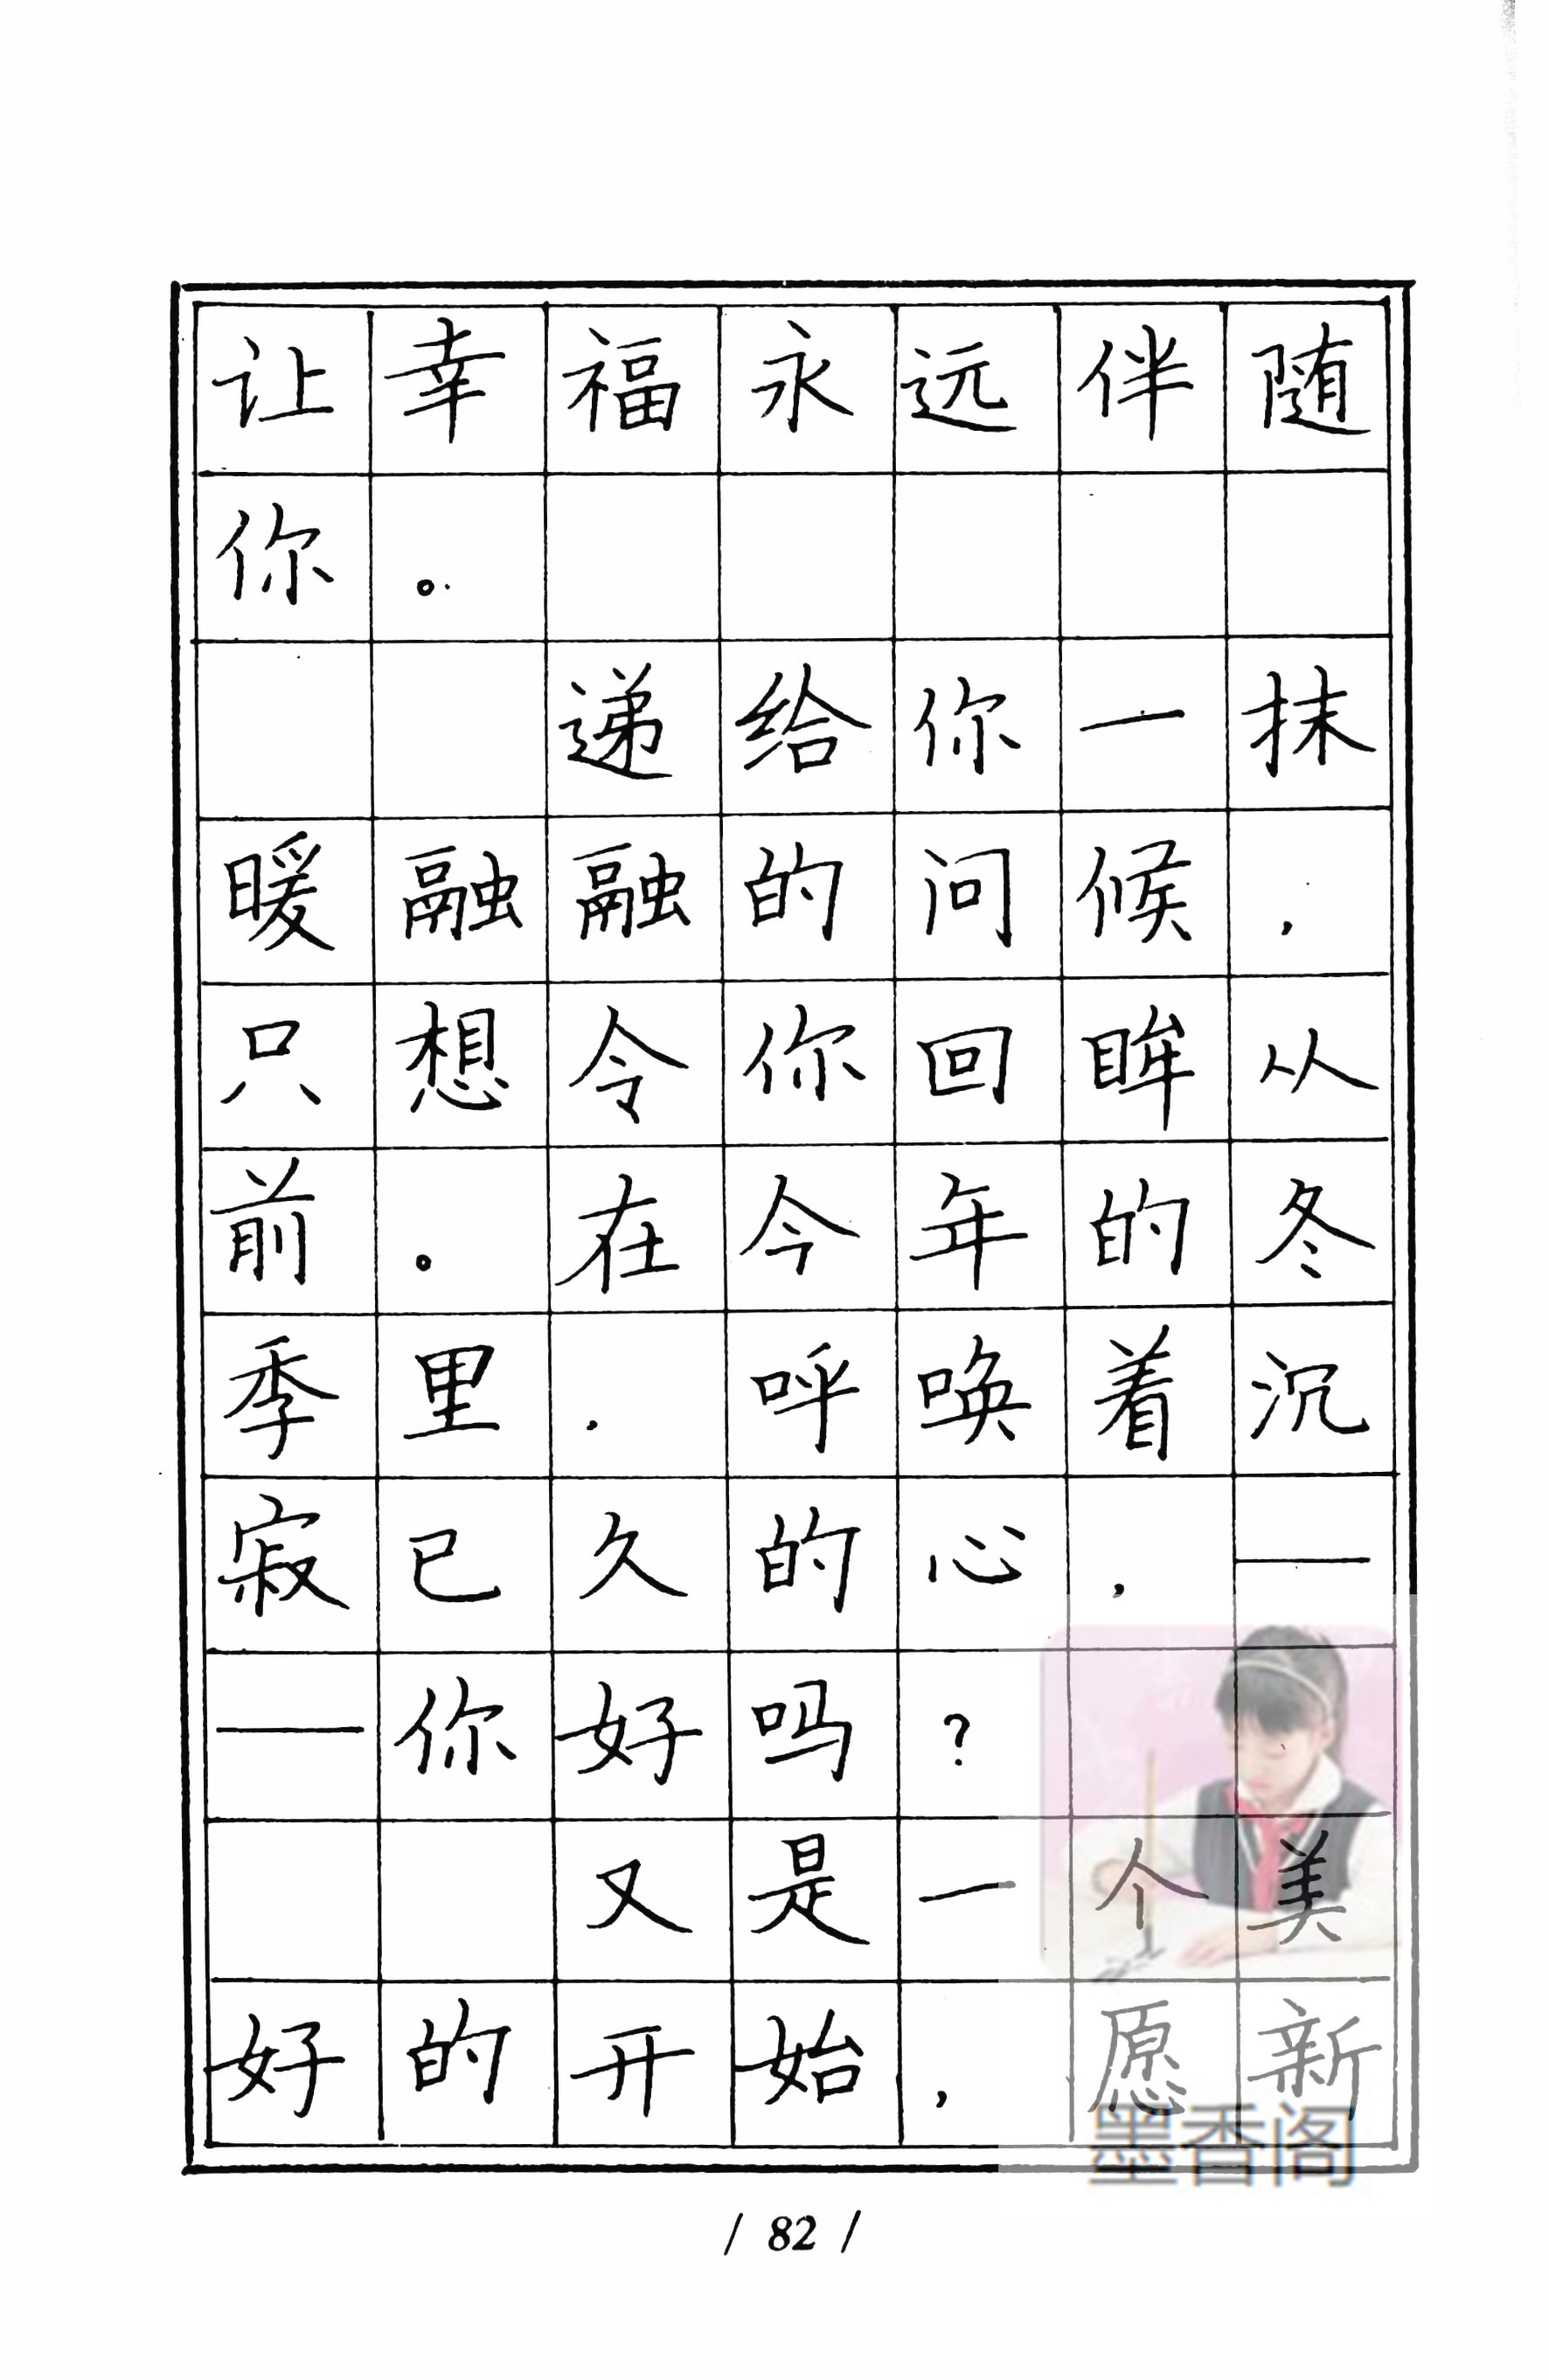 让幸福永远伴随
你。
递给你一抹
暖融融的问候，
只想令你回眸从
前。在今年的冬
季里，呼唤着沉
寂已久的心，—
—你好吗？
又是一个美
好的开始，愿新
墨香阁
/ 82 /